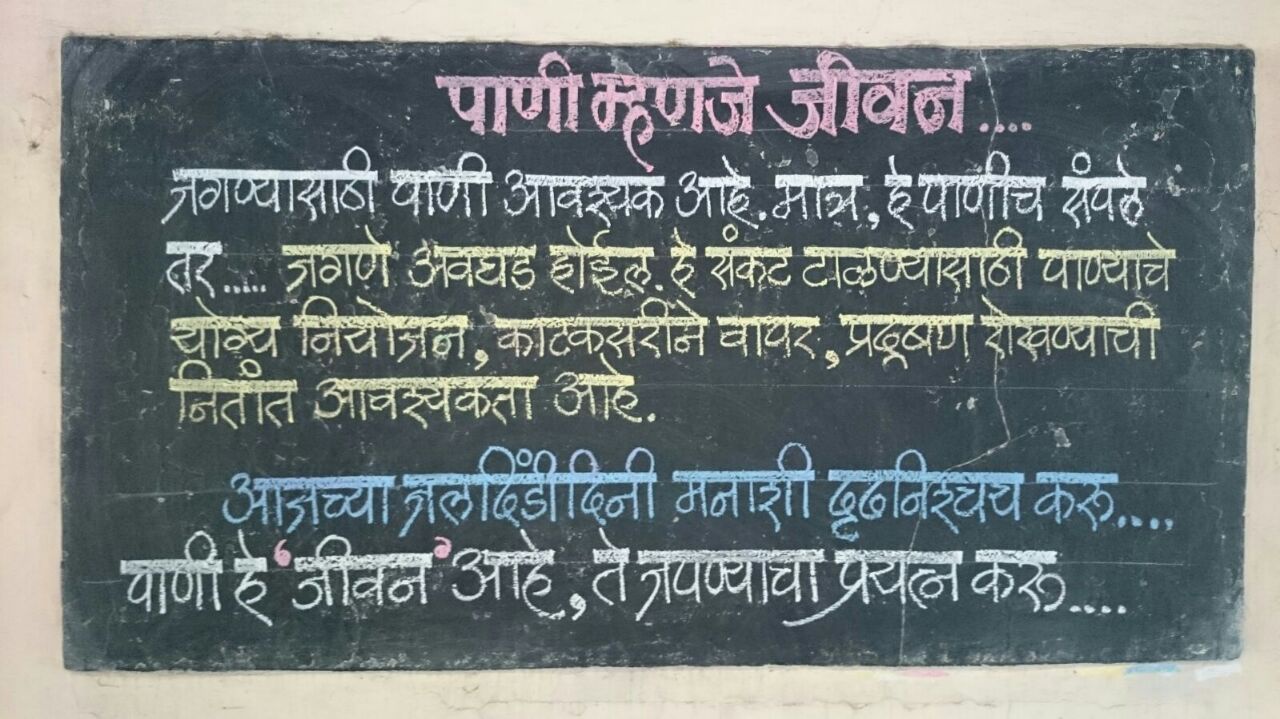 पाणी म्हणजे जीवन....
जगण्यासाठी पाणी आवश्यक आहे. मात्र, हे पाणीच संपले
तर..... जगणे अवघड होईल. हे संकट टाळण्यासाठी पाण्याचे
योग्य नियोजन, काटकसरीने वापर, प्रदूषण रोखण्याची
नितांत आवश्यकता आहे.
आजच्या जलदिंडीदिनी मनाशी दृढनिश्चय करू....
पाणी हे 'जीवन' आहे, ते जपण्याचा प्रयत्न करू....